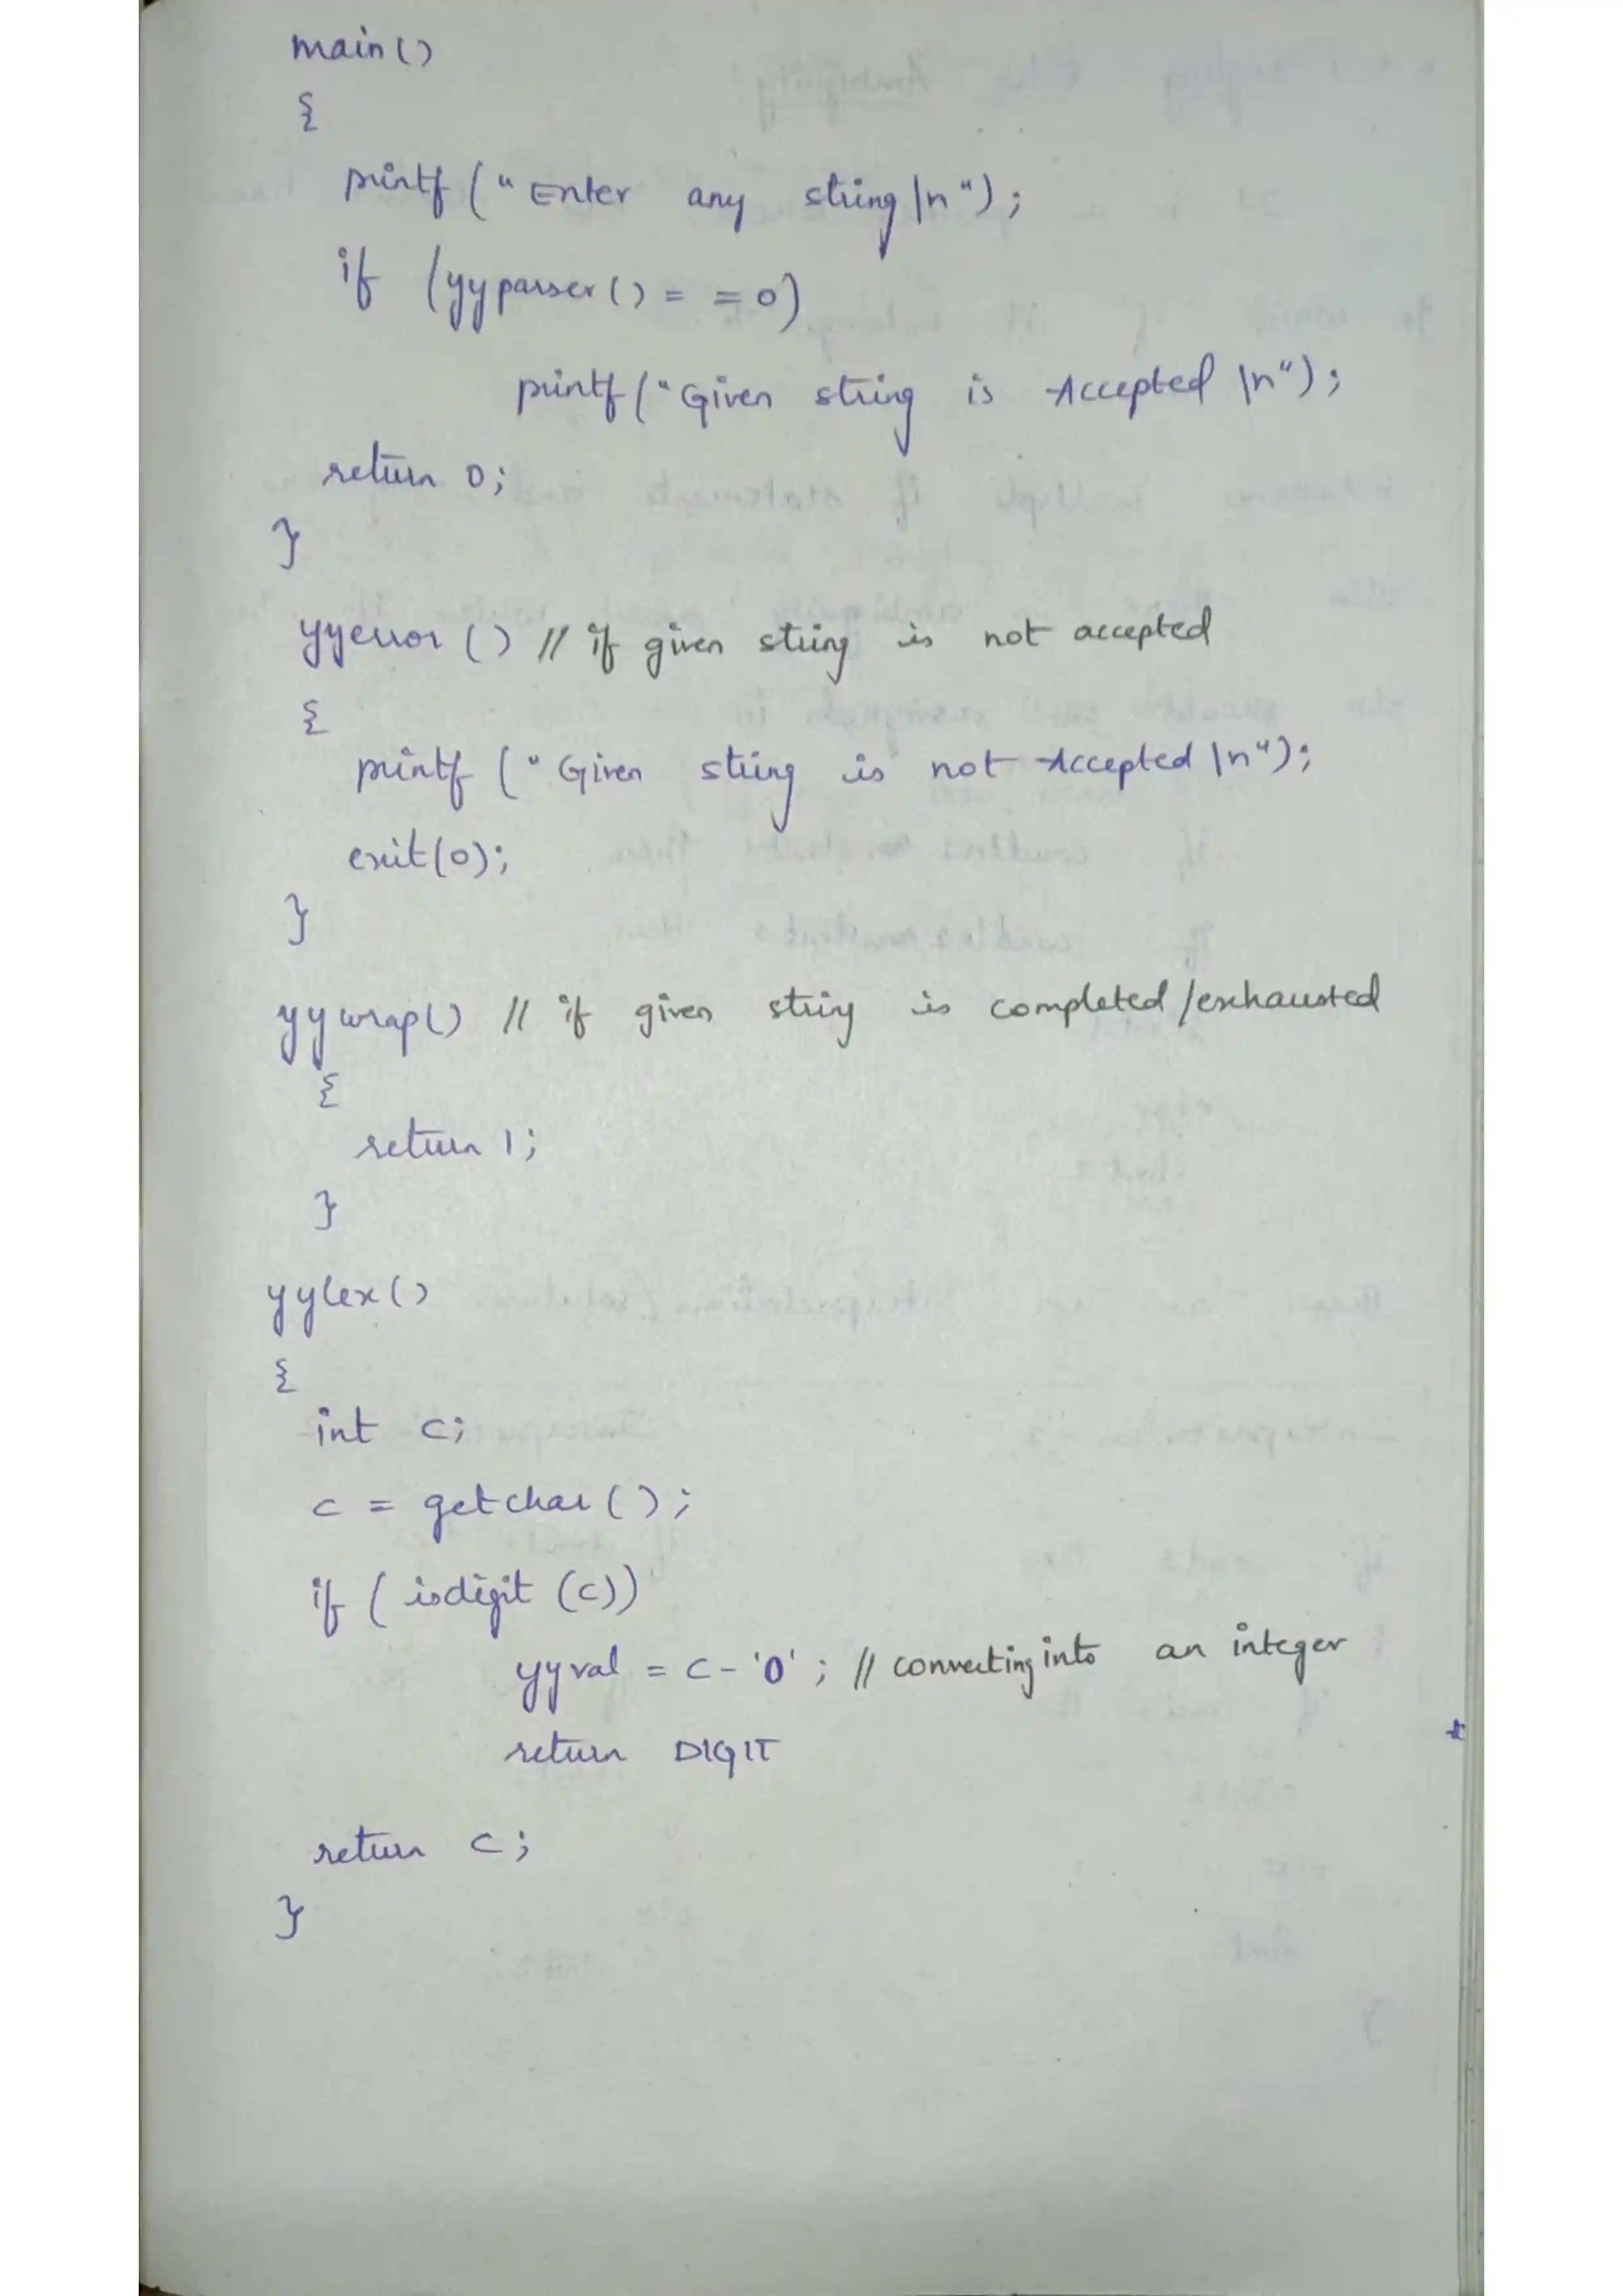 main()
{
printf ("Enter any string \n");
if (yyparser() = = 0)
printf ("Given string is Accepted \n");
return 0;
}
yyerror () // if given string is not accepted
{
printf ("Given string is not Accepted \n");
exit(0);
}
yywrap() // if given string is completed /exhausted
{
return 1;
}
yylex()
{
int c;
c = getchar();
if ( isdigit (c))
yyval = c - '0' ; // converting into an integer
return DIGIT
return c;
}